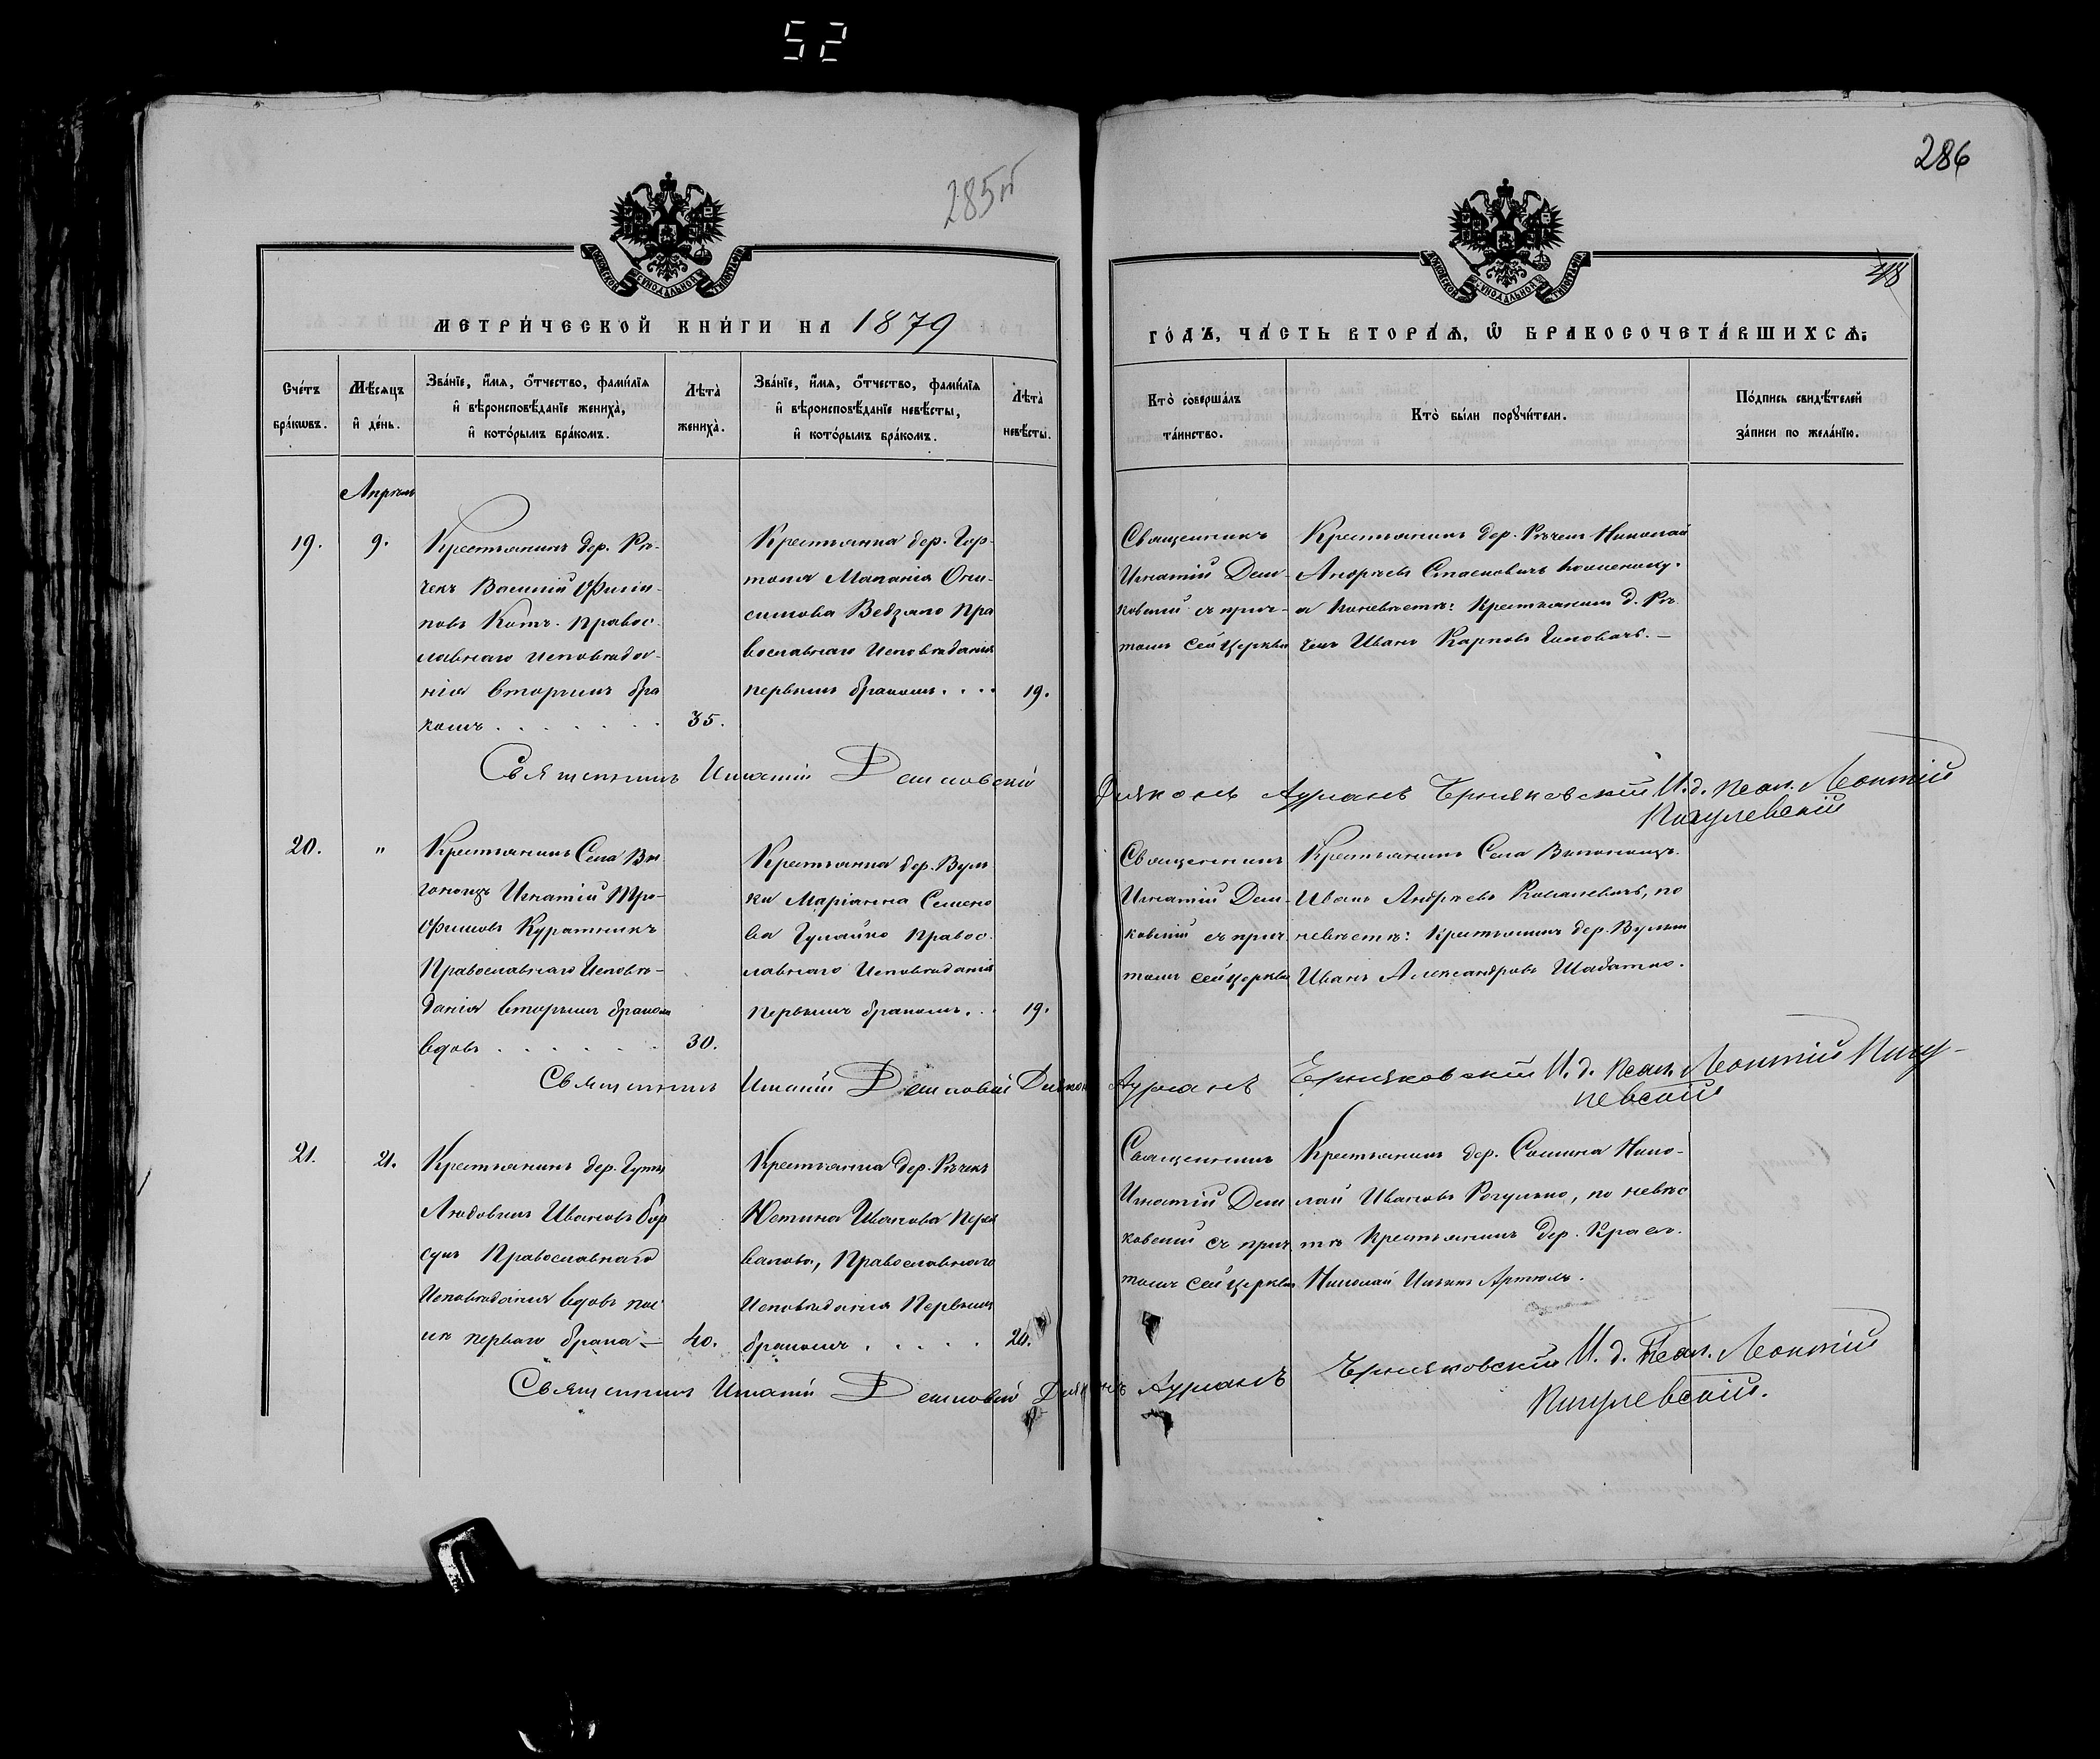 52
285
286
48
МЕТРИ́ЧЕСКОЙ КНИ́ГИ НА 1879
ГО́ДЪ, ЧА́СТЬ ВТОРА́Ѧ, Ѽ БРАКОСОЧЕТА́ВШИХСѦ:
Сче́тъ бра́кѡвъ.
Мѣ́сѧцъ и҆ де́нь.
Зва́нїе, и҆́мѧ, ѻ҆́тчество, фами́лїѧ и҆ вѣроисповѣ́данїе женихà, и҆ кото́рымъ бра́комъ.
Лѣтà женихà.
Зва́нїе, и҆́мѧ, ѻ҆́тчество, фами́лїѧ и҆ вѣроисповѣ́данїе невѣ́сты, и҆ кото́рымъ бра́комъ.
Лѣтà невѣ́сты.
Кто̀ соверша́лъ та́инство.
Кто̀ бы́ли порꙋчи́тели.
По́дпись свидѣ́телей за́писи по жела́нїю.
Апрѣль
19.
9.
Крестьянинъ дер. Рѣ-
чекъ Василій Филип-
повъ Котъ. Правос-
лавнаго исповѣда-
нія вторымъ бра
комъ
35.
Крестьянка дер. Гор-
толя Маланія Они-
симова Ведзяло Пра
вославнаго Исповѣданія
первымъ бракомъ
19.
Священникъ
Игнатій Дем-
ковскій съ прич-
томъ сей Церкви
Крестьянинъ дер. Рѣчекъ Николай
Андреевъ Стасковичъ по жениху.
а по невѣстѣ: Крестьянинъ д. Рѣ
чекъ Иванъ Карповъ
Священникъ Игнатій Демковскій Діаконъ Адріанъ Черняковскій И. д. псал. Леонтій
Пигулевскій
20.
"
Крестьянинъ Села Вы
гонощъ Игнатій Тро-
фимовъ Куратникъ
Православнаго Исповѣ-
данія вторымъ бракомъ
вдовъ
30.
Крестьянка дер. Вуль
ки Маріанна Семено
ва Гулайко Правос-
лавнаго Исповѣданія
первымъ бракомъ
19.
Священникъ
Игнатій Дем-
ковскій съ прич
томъ сей Церкви
Крестьянинъ Села Выгонощъ
Иванъ Андреевъ Ковалевичъ, по
невѣстѣ: Крестьянинъ дер. Вульки
Иванъ Александровъ Шабатко.
Священникъ Игнатій Демковскій Діаконъ Адріанъ Черняковскій И. д. псал. Леонтій Пигу-
левскій
21.
21.
Крестьянинъ дер. Гуты
Людовикъ Ивановъ Бор
сукъ Православнаго
Исповѣданія вдовъ пос
лѣ перваго брака —
40.
Крестьянка дер. Рѣчекъ
Юстина Иванова
Православнаго
Исповѣданія Первымъ
бракомъ
20.
Священникъ
Игнатій Дем
ковскій съ прич
томъ сей Церкви
Крестьянинъ дер. Сомина Нико-
лай Ивановъ Рогулько, по невѣс
тѣ Крестьянинъ дер.
Николай Ильинъ
Священникъ Игнатій Демковскій Діаконъ Адріанъ Черняковскій И. д. Псал. Леонтій
Пигулевскій.